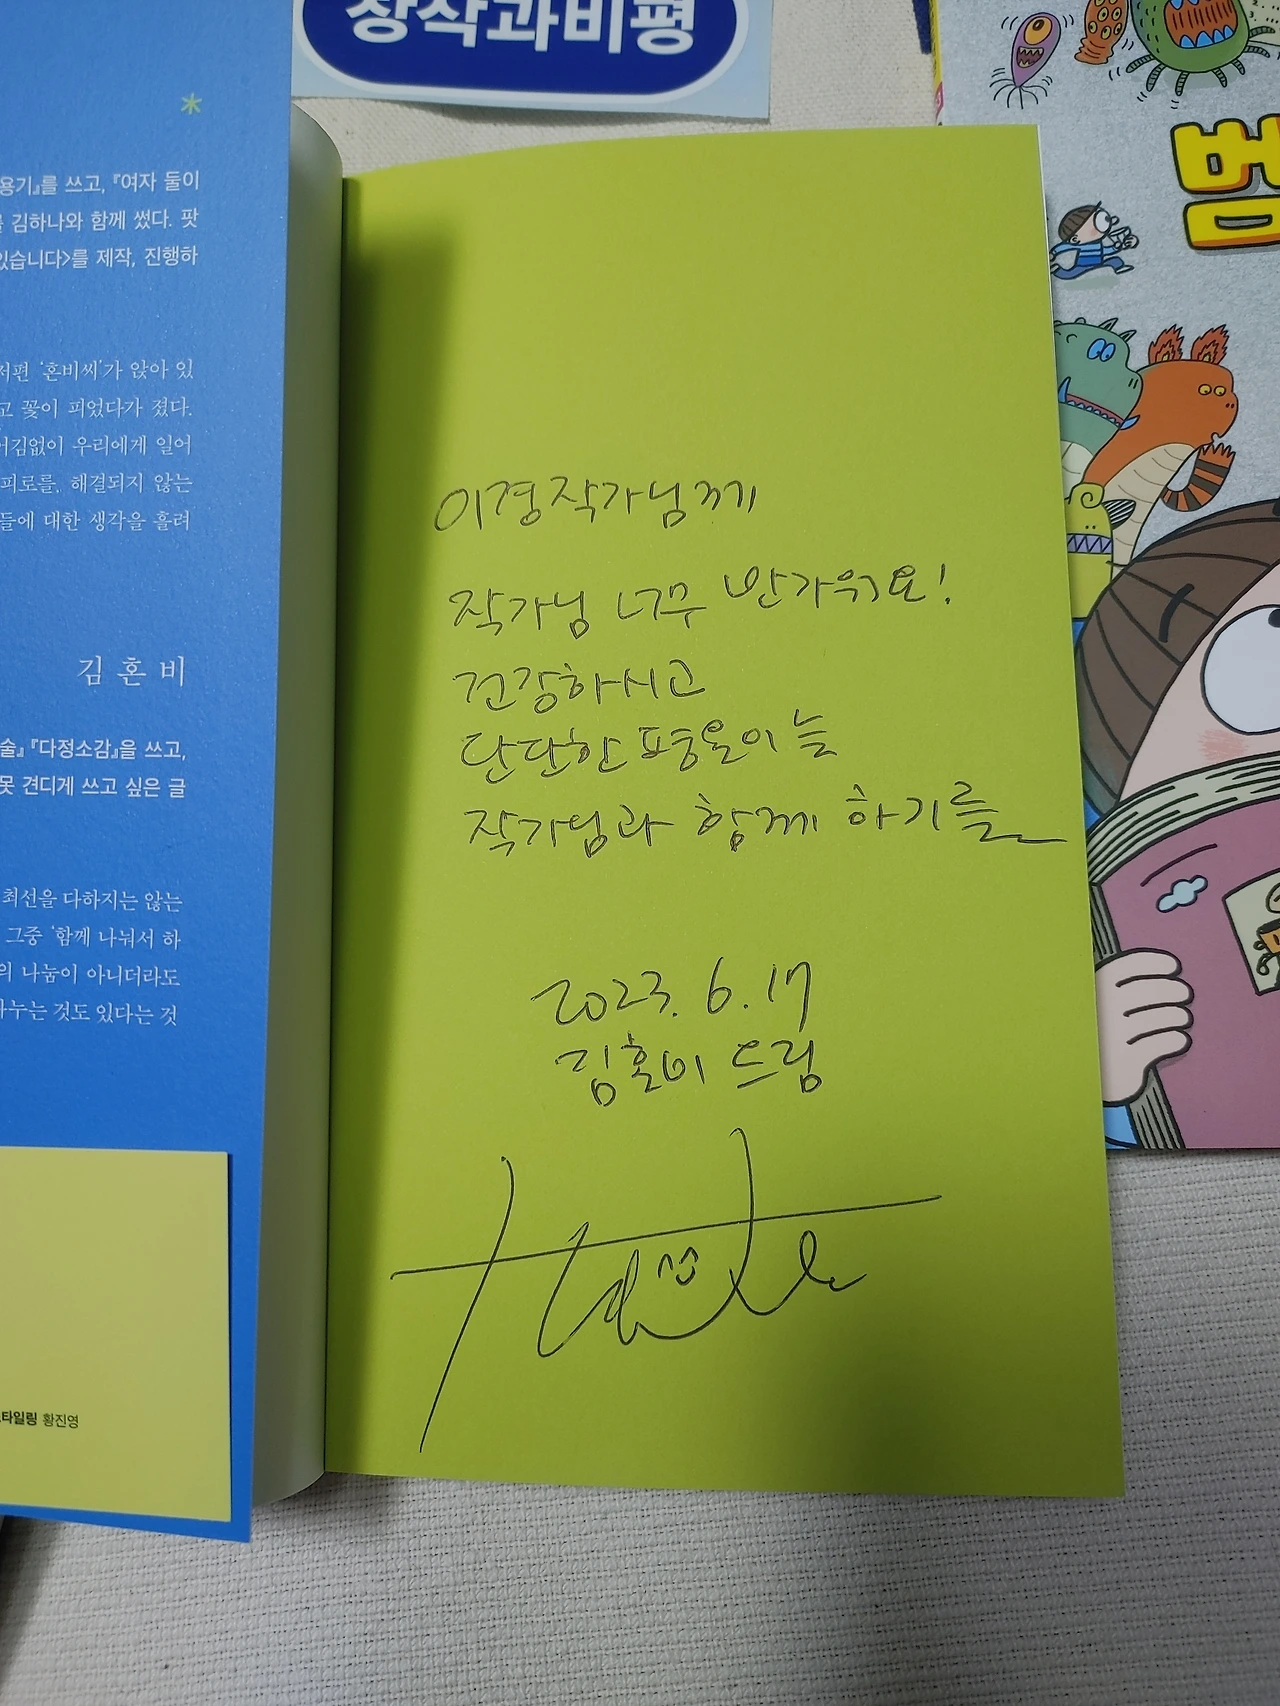 창작과비평
용기』를 쓰고, 『여자 둘이
김하나와 함께 썼다. 팟
있습니다>를 제작, 진행하
저편 '혼비씨'가 앉아 있
고 꽃이 피었다가 졌다.
어김없이 우리에게 일어
피로를, 해결되지 않는
들에 대한 생각을 흘려
김혼비
술』 『다정소감』을 쓰고,
못 견디게 쓰고 싶은 글
최선을 다하지는 않는
그중 '함께 나눠서 하
의 나눔이 아니더라도
나누는 것도 있다는 것
타일링 황진영
이경작가님께
작가님 너무 반가워요!
건강하시고
단단한 평온이 늘
작가님과 함께 하기를
2023. 6. 17
김혼비 드림
범